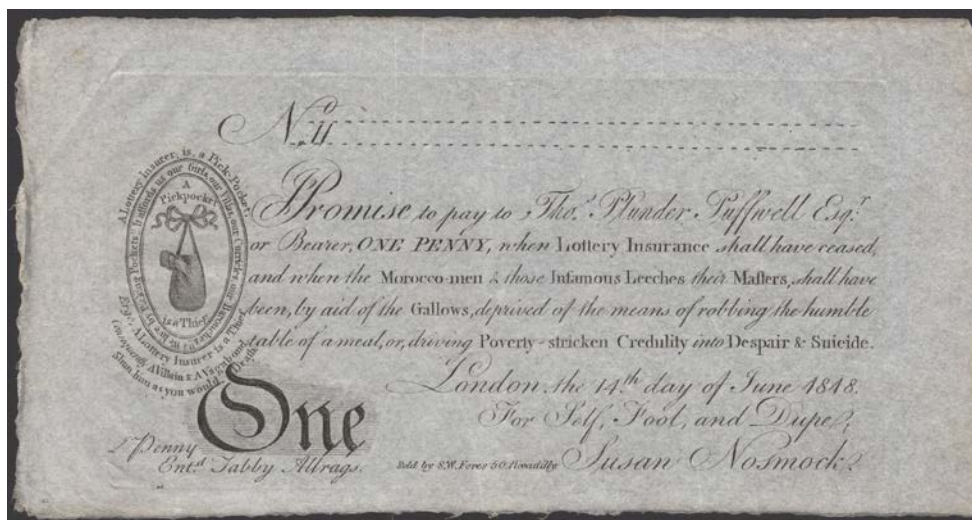 No
A Lottery Insurer, is, a Pick-Pocket;
by Picking Pockets It affords us our Girls, our Villas, our Curricles, our
A
Pickpocket
is a Thief
Ergo, A Lottery Insurer is a Thief
Consequently A Villain & A Vagabond
Shun him as you would Death
I Promise to pay to Thos. Plunder Puffwell Esqr.
or Bearer, ONE PENNY, when Lottery Insurance shall have ceased,
and when the Morocco-men & those Infamous Leeches their Maſters, shall have
been, by aid of the Gallows, deprived of the means of robbing the humble
table of a meal, or, driving Poverty-stricken Credulity into Despair & Suicide.
London, the 14th day of June 1818.
For Self, Fool, and Dupes,
One
Penny
Entd. Tabby Allrags.
Sold by S.W. Fores 50 Piccadilly
Susan Nosmock